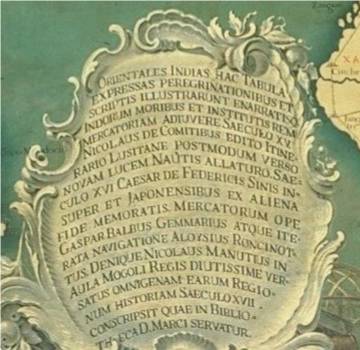 ORIENTALES INDIAS HAC TABULA
EXPRESSAS PEREGRINATIONIBUS ET
SCRIPTIS ILLUSTRARUNT ENARRATIO
INDORUM MORIBUS ET INSTITUTIS REM
MERCATORIAM ADIUVERE SAECULO XV.
NICOLAUS DE COMITIBUS EDITO ITINE-
RARIO LUSITANE POSTMODUM VERSO
NOVAM LUCEM NAUTIS ALLATURO. SAE-
CULO XVI CAESAR DE FEDERICIS SINIS IN-
SUPER ET JAPONENSIBUS EX ALIENA
FIDE MEMORATIS. MERCATORUM OPE
GASPAR BALBUS GEMMARIUS ATQUE ITE-
RATA NAVIGATIONE ALOYSIUS RONCINOT-
TUS. DENIQUE NICOLAUS MANUTIUS IN
AULA MOGOLI REGIS DIUTISSIME VER-
SATUS OMNIGENAM EARUM REGIO-
NUM HISTORIAM SAECULO XVII.
CONSCRIPSIT QUAE IN BIBLIO-
THECA D. MARCI SERVATUR.